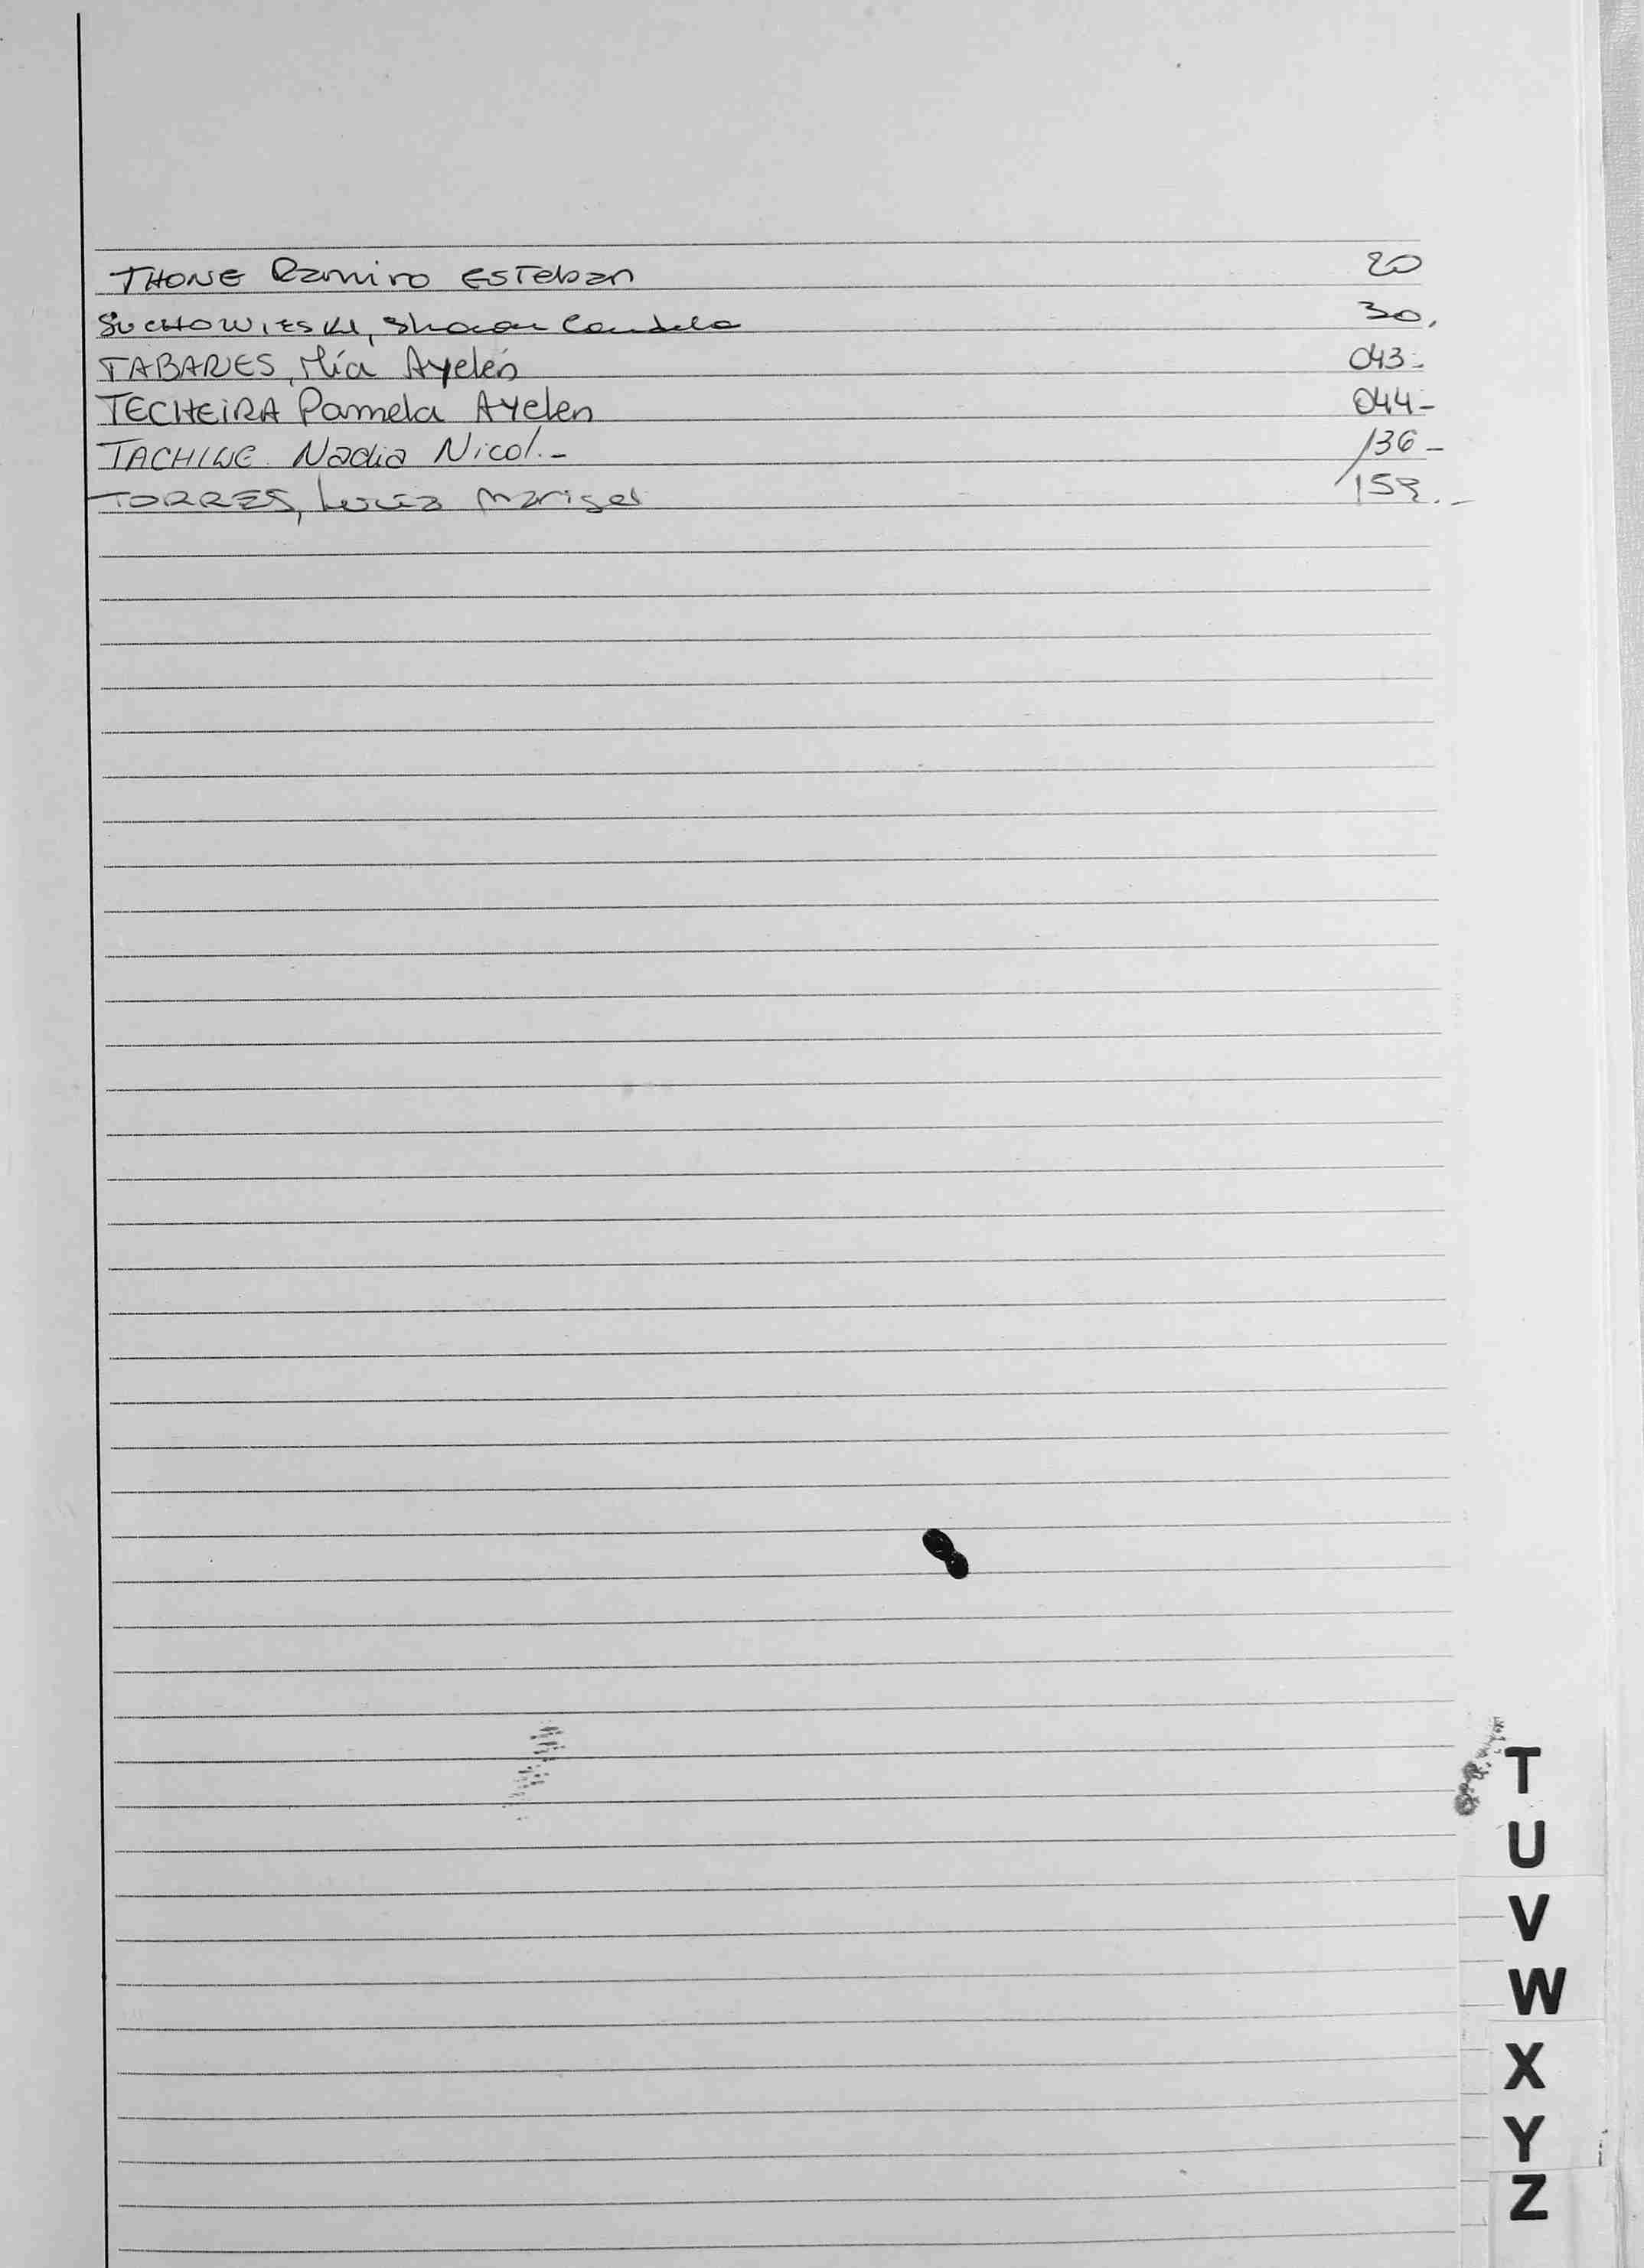 THONE Ramiro Esteban 20
SUCHOWIESKI, Sharon Candela 30.
TABARES, Mía Ayelén 043.-
TECHEIRA Pamela Ayelen 044-
TACHING Nadia Nicol.- 136-
TORRES, Lucía Marisel 159.-
T
U
V
W
X
Y
Z